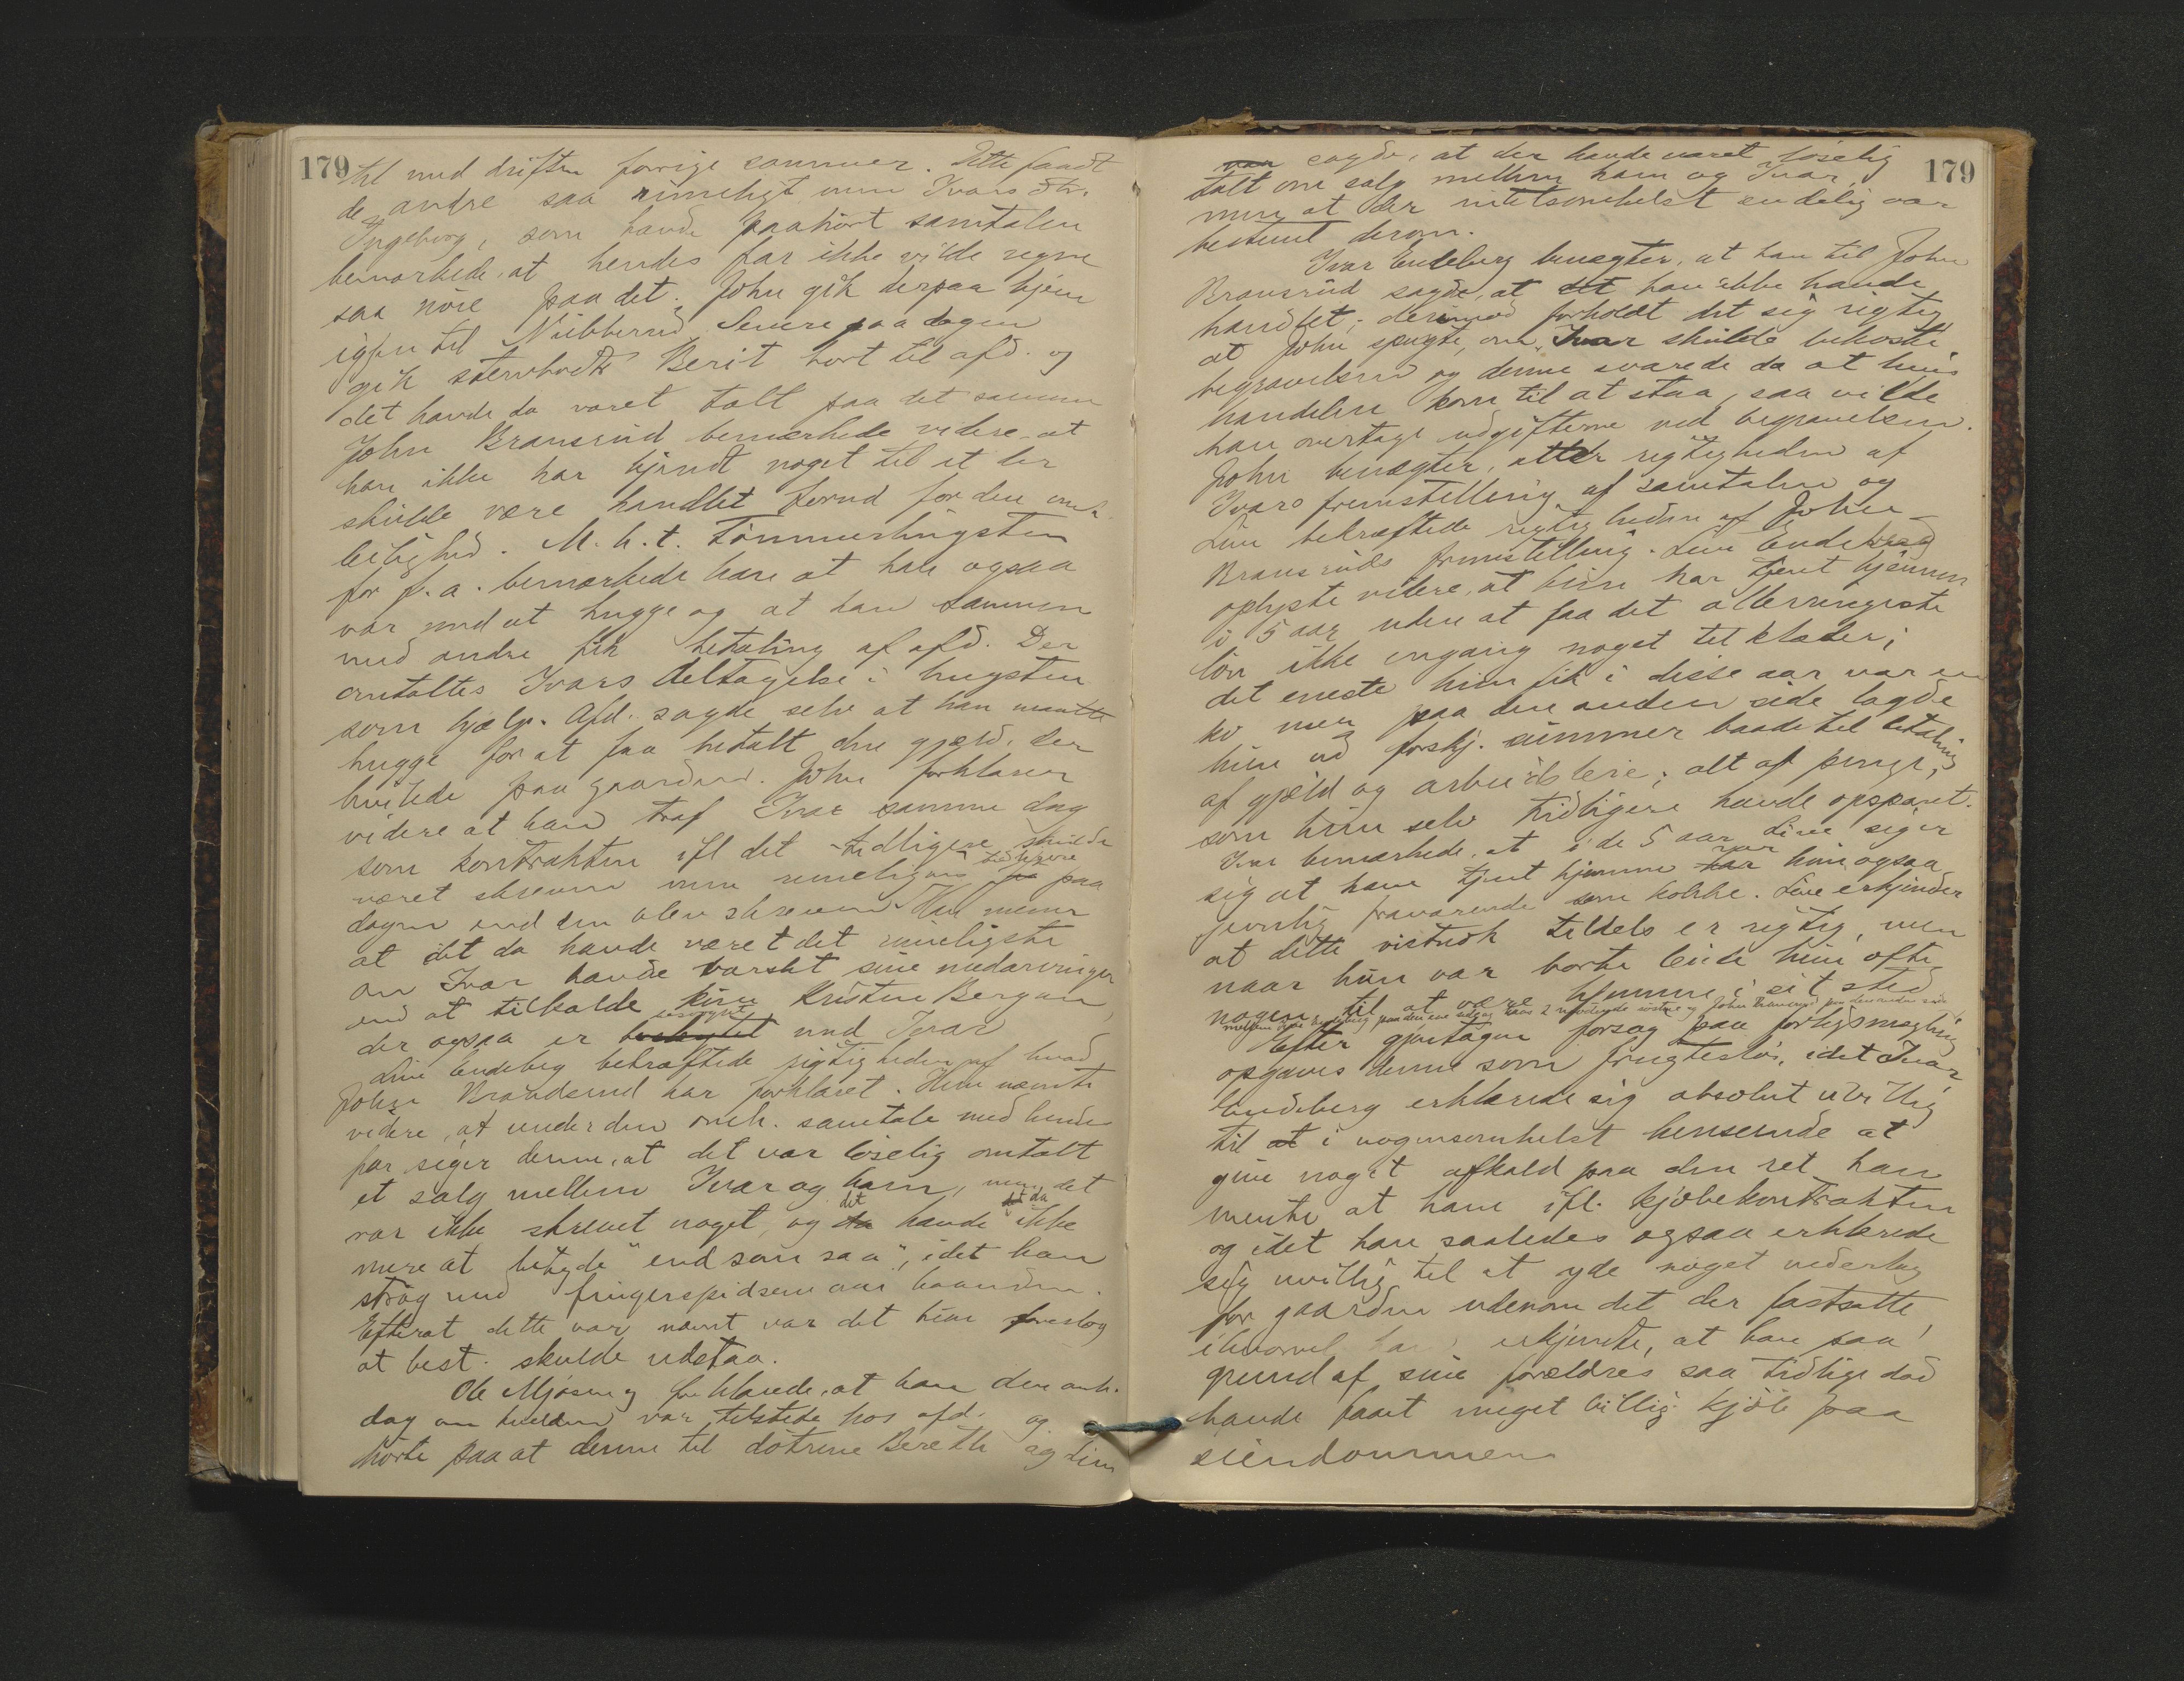 179
til med driften forrige sommer. Dette fandt
de andre saa rimeligt men Ivars dtr.
Ingeborg, som havde paahört samtalen
bemærkede, at hendes far ikke vilde regne
saa nöie paa det. John gik derpaa hjem
igjen til Nubberud. Senere paa dagen
gik Berit bort til afd. og
det havde da været talt paa det samme
John Bransrud bemærkede videre at
han ikke har kjendt noget til at der
skulde være handlet forud for den omh.
leilighed. M.h.t. Tömmerhugsten
for f.a. bemærkede han at han ogsaa
var med at hugge og at han sammen
med andre fik betaling af afd. Der
omtaltes Ivars deltagelse i hugsten
som hjælp. Afd. sagde selv at han maatte
hugge for at faa betalt den gjæld, der
hvilede paa gaarden. John forklarer
videre at han traf Ivar samme dag
som kontrakten ifl det tidligere skulde
været skreven men rimeligvis tidligere paa
dagen end den blev skreven. Han mener
at det da havde været det rimeligste
om Ivar havde varslet sine medarvinger
end at tilkalde Kristen Bergum,
der ogsaa er besvogret med Ivar
Live Endeberg bekræftede rigtigheden af hvad
John Brandsrud har forklaret. Hun nævnte
videre, at under den omh. samtale med hendes
far siger denne, at det var löselig omtalt
et salg mellem Ivar og ham, men det
var ikke skrevet noget, og det havde det da ikke
mere at betyde "end som saa", idet han
strög med fingerspidsene over haanden.
Efterat dette var nævnt var det hun foreslog
at best. skulde udstaa.
Ole Mjösen forklarede, at han den omh.
dag om kvelden var tilstede hos afd. og
hörte paa at denne til dötrene Berethe og Live
179
sagde, at der havde været löselig
talt om salg mellem ham og Ivar,
men at der intetsomhelst endelig var
bestemt derom.
Ivar Endeberg benægter, at han til John
Bransrud sagde, at han ikke havde
handlet; derimod forholdt det sig rigtig
at John spurgte, om Ivar skulde bekoste
begravelsen og denne svarede da at hvis
handelen kom til at staa, saa vilde
han overtage udgifterne ved begravelsen.
John benægter, atter rigtigheden af
Ivars fremstilling af samtalen og
Live bekræftede rigtigheden af John
Bransruds fremstilling. Live Endeberg
oplyste videre, at hun har tjent hjemme
i 5 aar uden at faa det allerringeste
lön ikke engang noget til klæder;
det eneste hun fik i disse aar var en
ko men paa den anden side lagde
hun ud forskj. summer baade til betaling
af gjæld og arbeidsleie; alt af penge,
som hun selv tidligere havde opsparet.
Ivar bemærkede, at i de 5 aar Live siger
sig at have tjent hjemme var hun ogsaa
jevnlig fraværende som kokke. Live erkjender
at dette vistnok tildels er rigtig, men
naar hun var borte leide hun ofte
nogen til at være hjemme i sit sted
mellem Ivar Endeberg paa den ene side og hans 2 söstre og John Bransrud paa den anden side
Efter gjentagne forsög paa forligsmægling
opgaves denne som frugteslös, idet Ivar
Endeberg erklærede sig absolut uvillig
til i nogensomhelst henseende at
give noget afkald paa den ret han
mente at have ifl. kjöbekontrakten
og idet han saaledes ogsaa erklærede
sig uvillig til at yde noget vederlag
for gaarden udenom det der fastsatte,
ihvorvel han erkjendte, at han paa
grund af sine forældres saa tidlige död
havde faaet meget billig kjöb paa
eiendommen